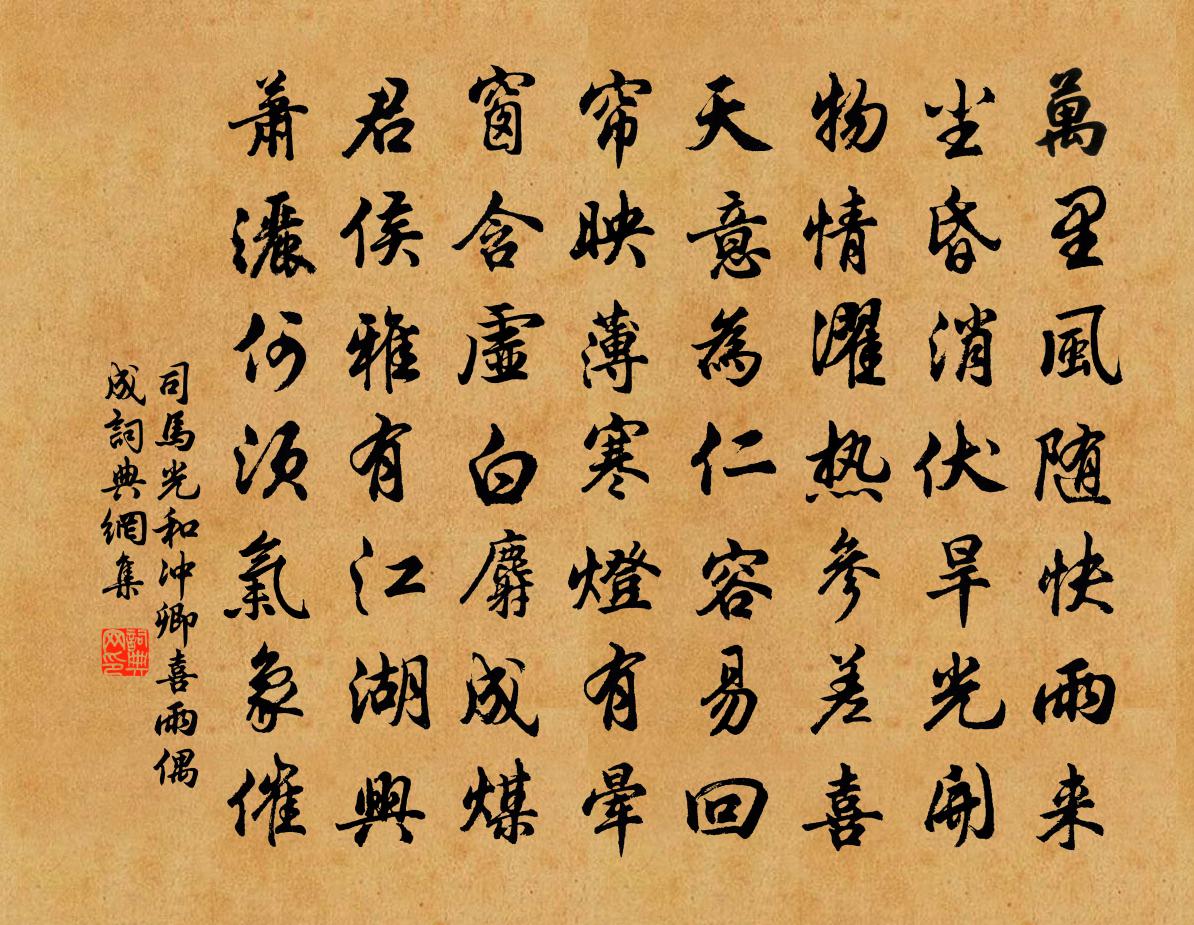 萬里風随快雨来
坐昏消伏旱光開
物情濯热參差喜
天意為仁容易回
帘映薄寒燈有暈
窗含虛白麝成煤
君侯雅有江湖興
蕭灑何須氣象催
司馬光和沖卿喜雨偶
成詞典網集
詞典网印